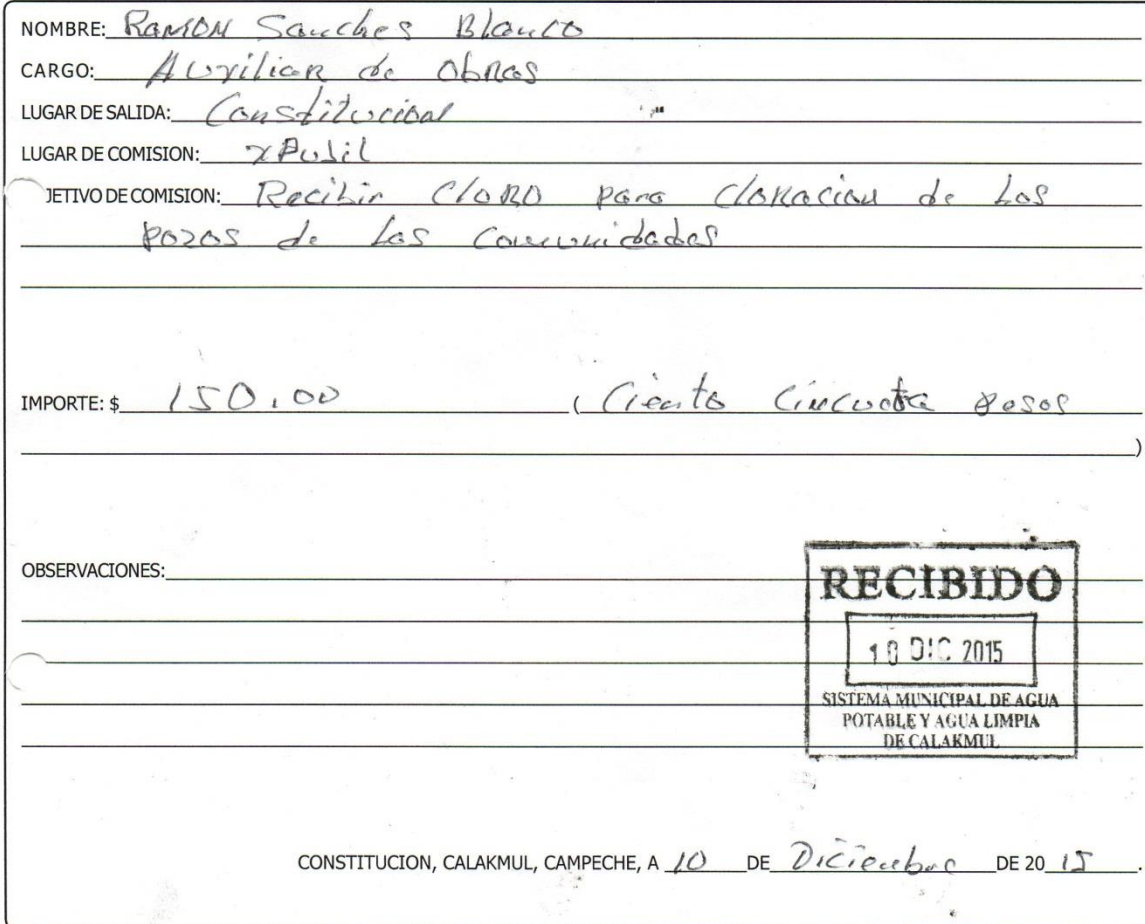 NOMBRE: Ramon Sanches Blanco
CARGO: Auxiliar de obras
LUGAR DE SALIDA: Constitucion
LUGAR DE COMISION: xPujil
JETIVO DE COMISION: Recibir Cloro para Cloracion de Los
pozos de Las Comunidades
IMPORTE: $ 150.00 ( Ciento Cincuota pesos
)
OBSERVACIONES:
RECIBIDO
10 DIC 2015
SISTEMA MUNICIPAL DE AGUA
POTABLE Y AGUA LIMPIA
DE CALAKMUL
CONSTITUCION, CALAKMUL, CAMPECHE, A 10 DE Diciembre DE 20 15.